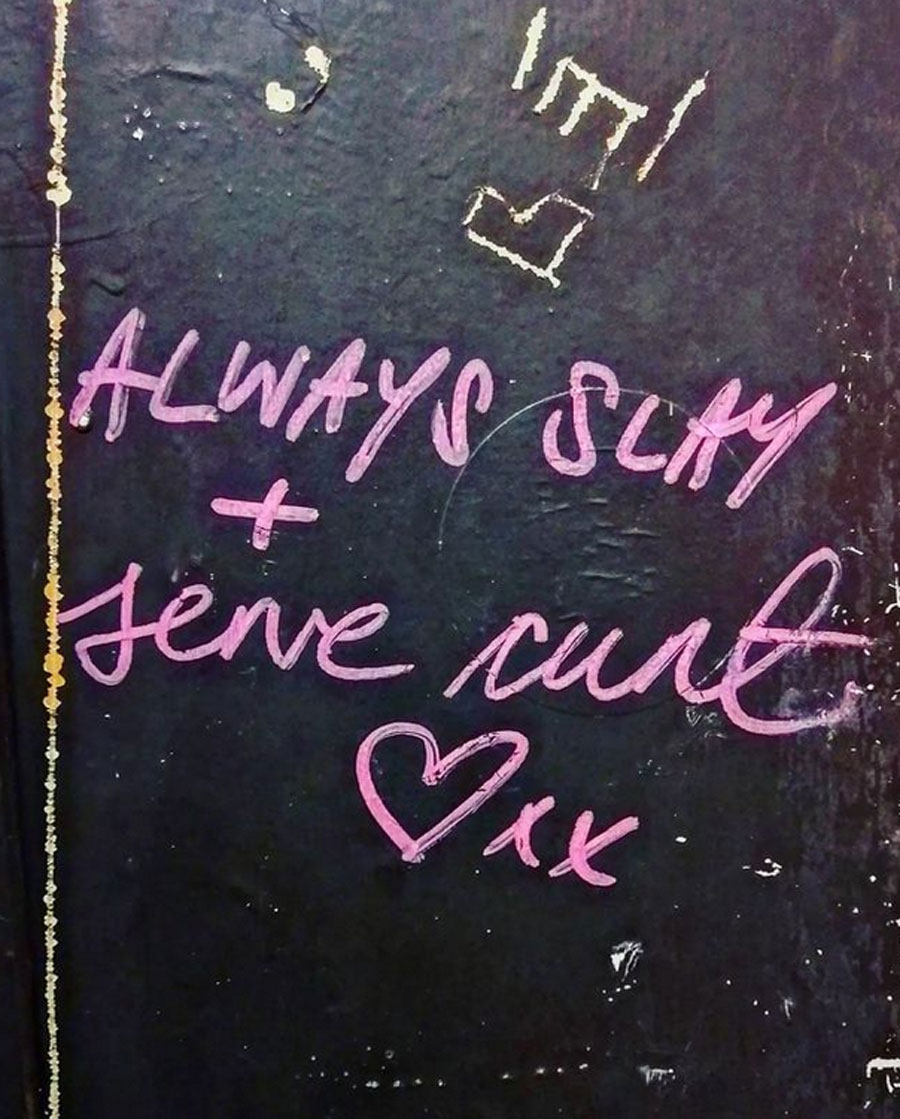 ALWAYS SLAY
+
serve cunt
♡xx